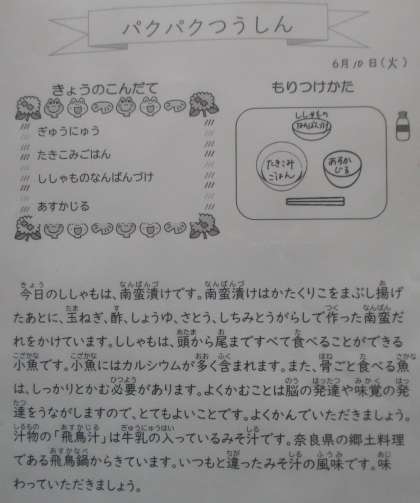 パクパクつうしん
6月10日(火)
きょうのこんだて
ぎゅうにゅう
たきこみごはん
ししゃものなんばんづけ
あすかじる
もりつけかた
ししゃもの
なんばんづけ
たきこみ
ごはん
あすか
じる
今日のししゃもは、南蛮漬けです。南蛮漬けはかたくりこをまぶし揚げ
たあとに、玉ねぎ、酢、しょうゆ、さとう、しちみとうがらしで作った南蛮だ
れをかけています。ししゃもは、頭から尾まですべて食べることができる
小魚です。小魚にはカルシウムが多く含まれます。また、骨ごと食べる魚
は、しっかりとかむ必要があります。よくかむことは脳の発達や味覚の発
達をうながしますので、とてもよいことです。よくかんでいただきましょう。
汁物の「飛鳥汁」は牛乳の入っているみそ汁です。奈良県の郷土料理
である飛鳥鍋からきています。いつもと違ったみそ汁の風味です。味
わっていただきましょう。